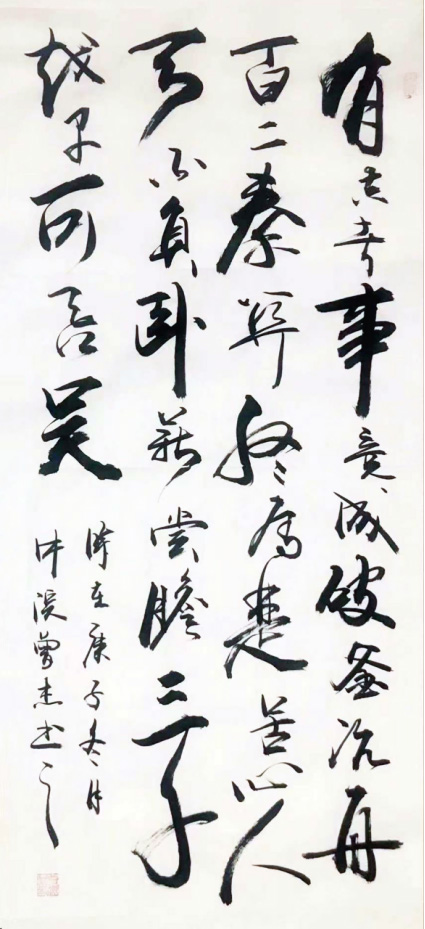 有志者事竟成破釜沉舟
百二秦関终属楚苦心人
天不負卧薪嘗膽三千
越甲可吞吴
時在庚子冬月
曾杰书之